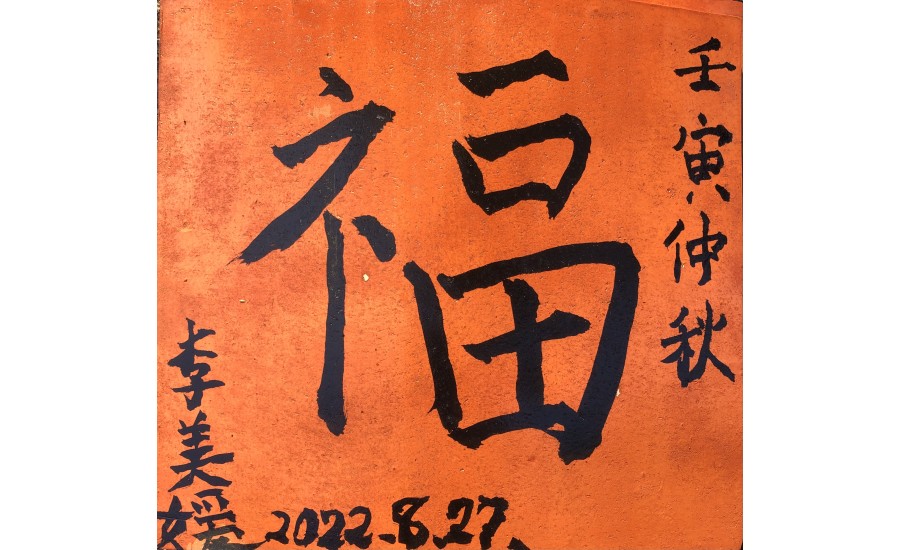 壬寅仲秋
福
李美媛
2022.8.27.